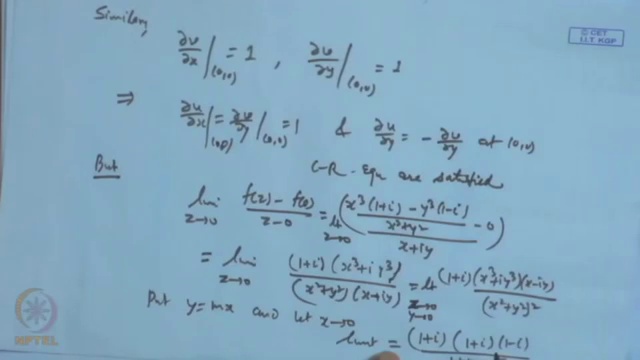 Similarly
∂v/∂x |(0,0) = 1 , ∂v/∂y |(0,0) = 1
⇒ ∂u/∂x |(0,0) = ∂v/∂y |(0,0) = 1 & ∂u/∂y = - ∂v/∂y at (0,0)
C-R- Equ are satisfied
But
lim z→0 (f(z) - f(0))/(z-0) = lt z→0 ((x³(1+i) - y³(1-i))/(x³+y²) - 0)/(x+iy)
= lim z→0 (1+i)(x³+iy³)/((x²+y²)(x+iy)) = lt x→0 y→0 (1+i)(x³+iy³)(x-iy)/(x²+y²)²
Put y=mx and let x→0
limit = (1+i)(1+i)(1-i)
© CET
I.I.T. KGP
NPTEL